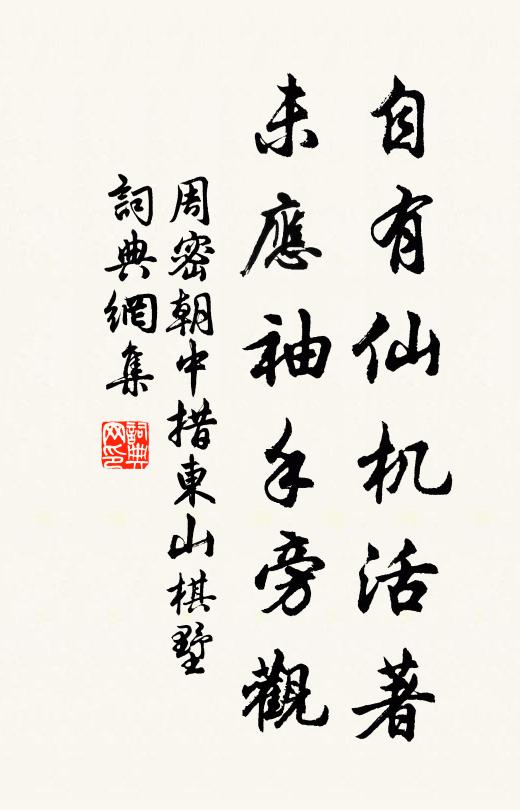 自有仙机活著
未應袖手旁觀
周密朝中措東山棋墅
詞典網集
詞典网印